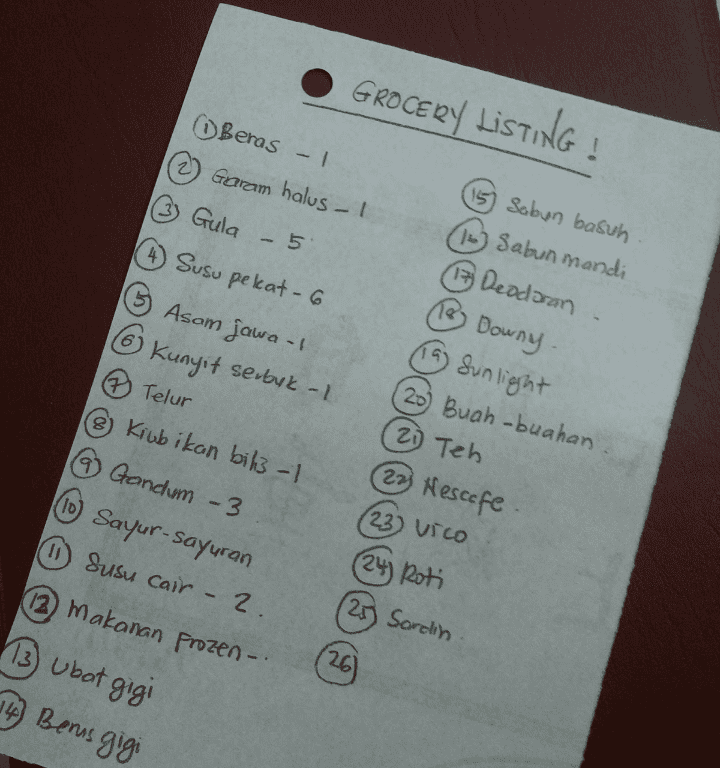 GROCERY LISTING!
1 Beras - 1
2 Garam halus - 1
3 Gula - 5
4 Susu pekat - 6
5 Asam jawa - 1
6 Kunyit serbuk - 1
7 Telur
8 Kiub ikan bilis - 1
9 Gandum - 3
10 Sayur-sayuran
11 Susu cair - 2.
12 Makanan frozen -.
13 Ubat gigi
14 Berus gigi
15 Sabun basuh.
16 Sabun mandi
17 Deodoran.
18 Downy.
19 Sunlight
20 Buah-buahan.
21 Teh
22 Nescafe.
23 Vico
24 Roti
25 Sardin.
26